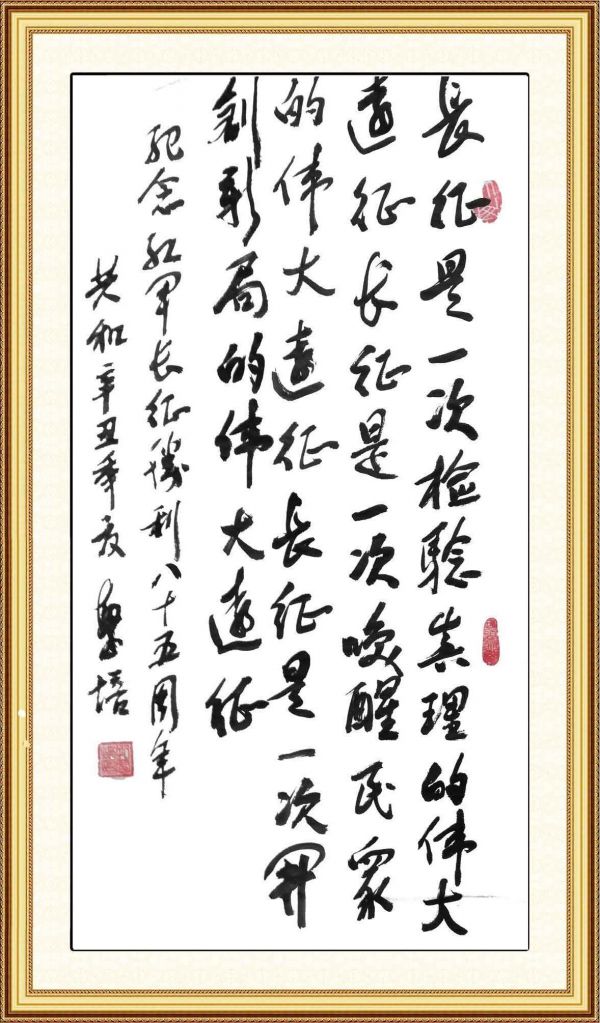 長征是一次檢驗真理的伟大
遠征长征是一次唤醒民衆
的伟大遠征长征是一次開
創新局的伟大遠征
紀念红軍长征勝利八十五周年
共和辛丑年夏